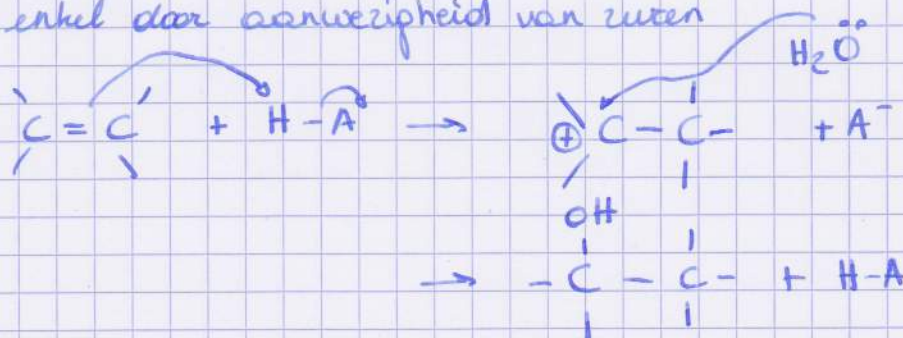 enkel door aanwezigheid van zuren
H₂Ö
C = C + H - A → ⊕ C - C - + A⁻
OH
→ - C - C - + H-A